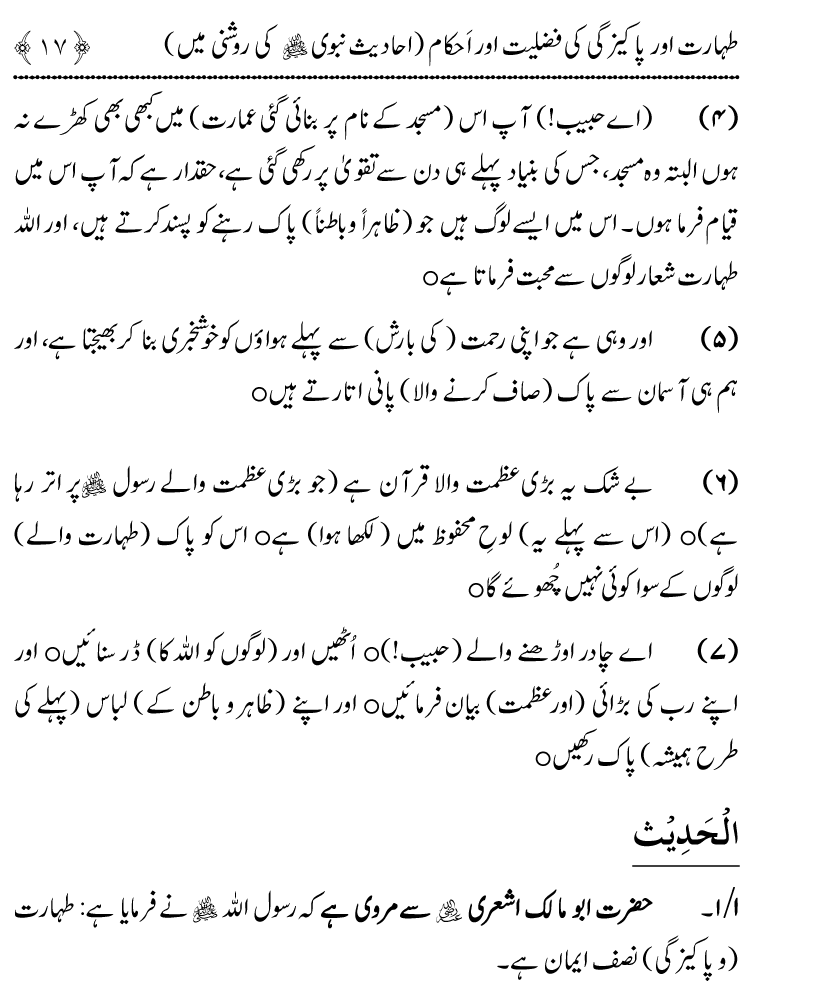 طہارت اور پاکیزگی کی فضلیت اور اَحکام (احادیث نبوی ﷺ کی روشنی میں) ﴿۱۷﴾
(۴) (اے حبیب!) آپ اس (مسجد کے نام پر بنائی گئی عمارت) میں کبھی بھی کھڑے نہ
ہوں البتہ وہ مسجد، جس کی بنیاد پہلے ہی دن سے تقویٰ پر رکھی گئی ہے، حقدار ہے کہ آپ اس میں
قیام فرما ہوں۔ اس میں ایسے لوگ ہیں جو (ظاہراً وباطناً) پاک رہنے کو پسند کرتے ہیں، اور اللہ
طہارت شعار لوگوں سے محبت فرماتا ہےo
(۵) اور وہی ہے جو اپنی رحمت (کی بارش) سے پہلے ہواؤں کو خوشخبری بنا کر بھیجتا ہے، اور
ہم ہی آسمان سے پاک (صاف کرنے والا) پانی اتارتے ہیںo
(۶) بے شک یہ بڑی عظمت والا قرآن ہے (جو بڑی عظمت والے رسول ﷺ پر اتر رہا
ہے)o (اس سے پہلے یہ) لوحِ محفوظ میں (لکھا ہوا) ہےo اس کو پاک (طہارت والے)
لوگوں کے سوا کوئی نہیں چُھوئے گاo
(۷) اے چادر اوڑھنے والے (حبیب!)o اُٹھیں اور (لوگوں کو اللہ کا) ڈر سنائیںo اور
اپنے رب کی بڑائی (اور عظمت) بیان فرمائیںo اور اپنے (ظاہر و باطن کے) لباس (پہلے کی
طرح ہمیشہ) پاک رکھیںo
الْحَدِيْث
۱/۱۔ حضرت ابو مالک اشعری ؓ سے مروی ہے کہ رسول اللہ ﷺ نے فرمایا ہے: طہارت
(و پاکیزگی) نصف ایمان ہے۔